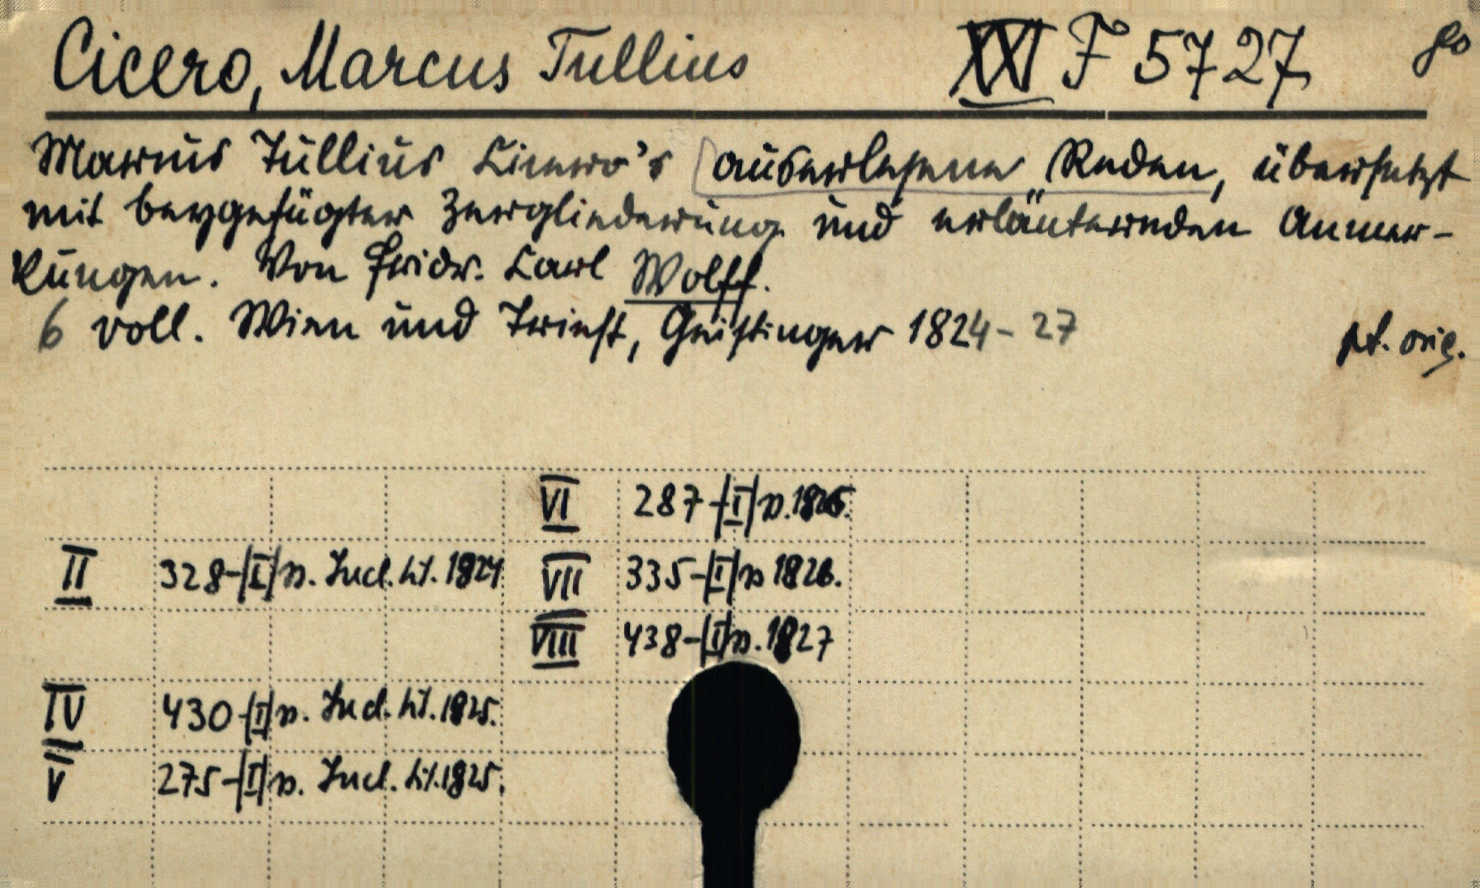 Cicero, Marcus Tullius XXI F 5727 80
Marcus Tullius Cicero's auserlesene Reden, übersetzt
mit beygefügter Zergliederung und erläuternden Anmer-
kungen. Von Fridr. Carl Wolff.
6 voll. Wien und Triest, Geistinger 1824-27 pt. orig.
VI 287-|I| p. 1826.
II 328-|I| p. Incl. tit. 1824 VII 335-|I| p 1826.
VIII 438-|I| p. 1827
IV 430-|I| p. Incl. tit. 1825.
V 275-|I| p. Incl. tit. 1825.